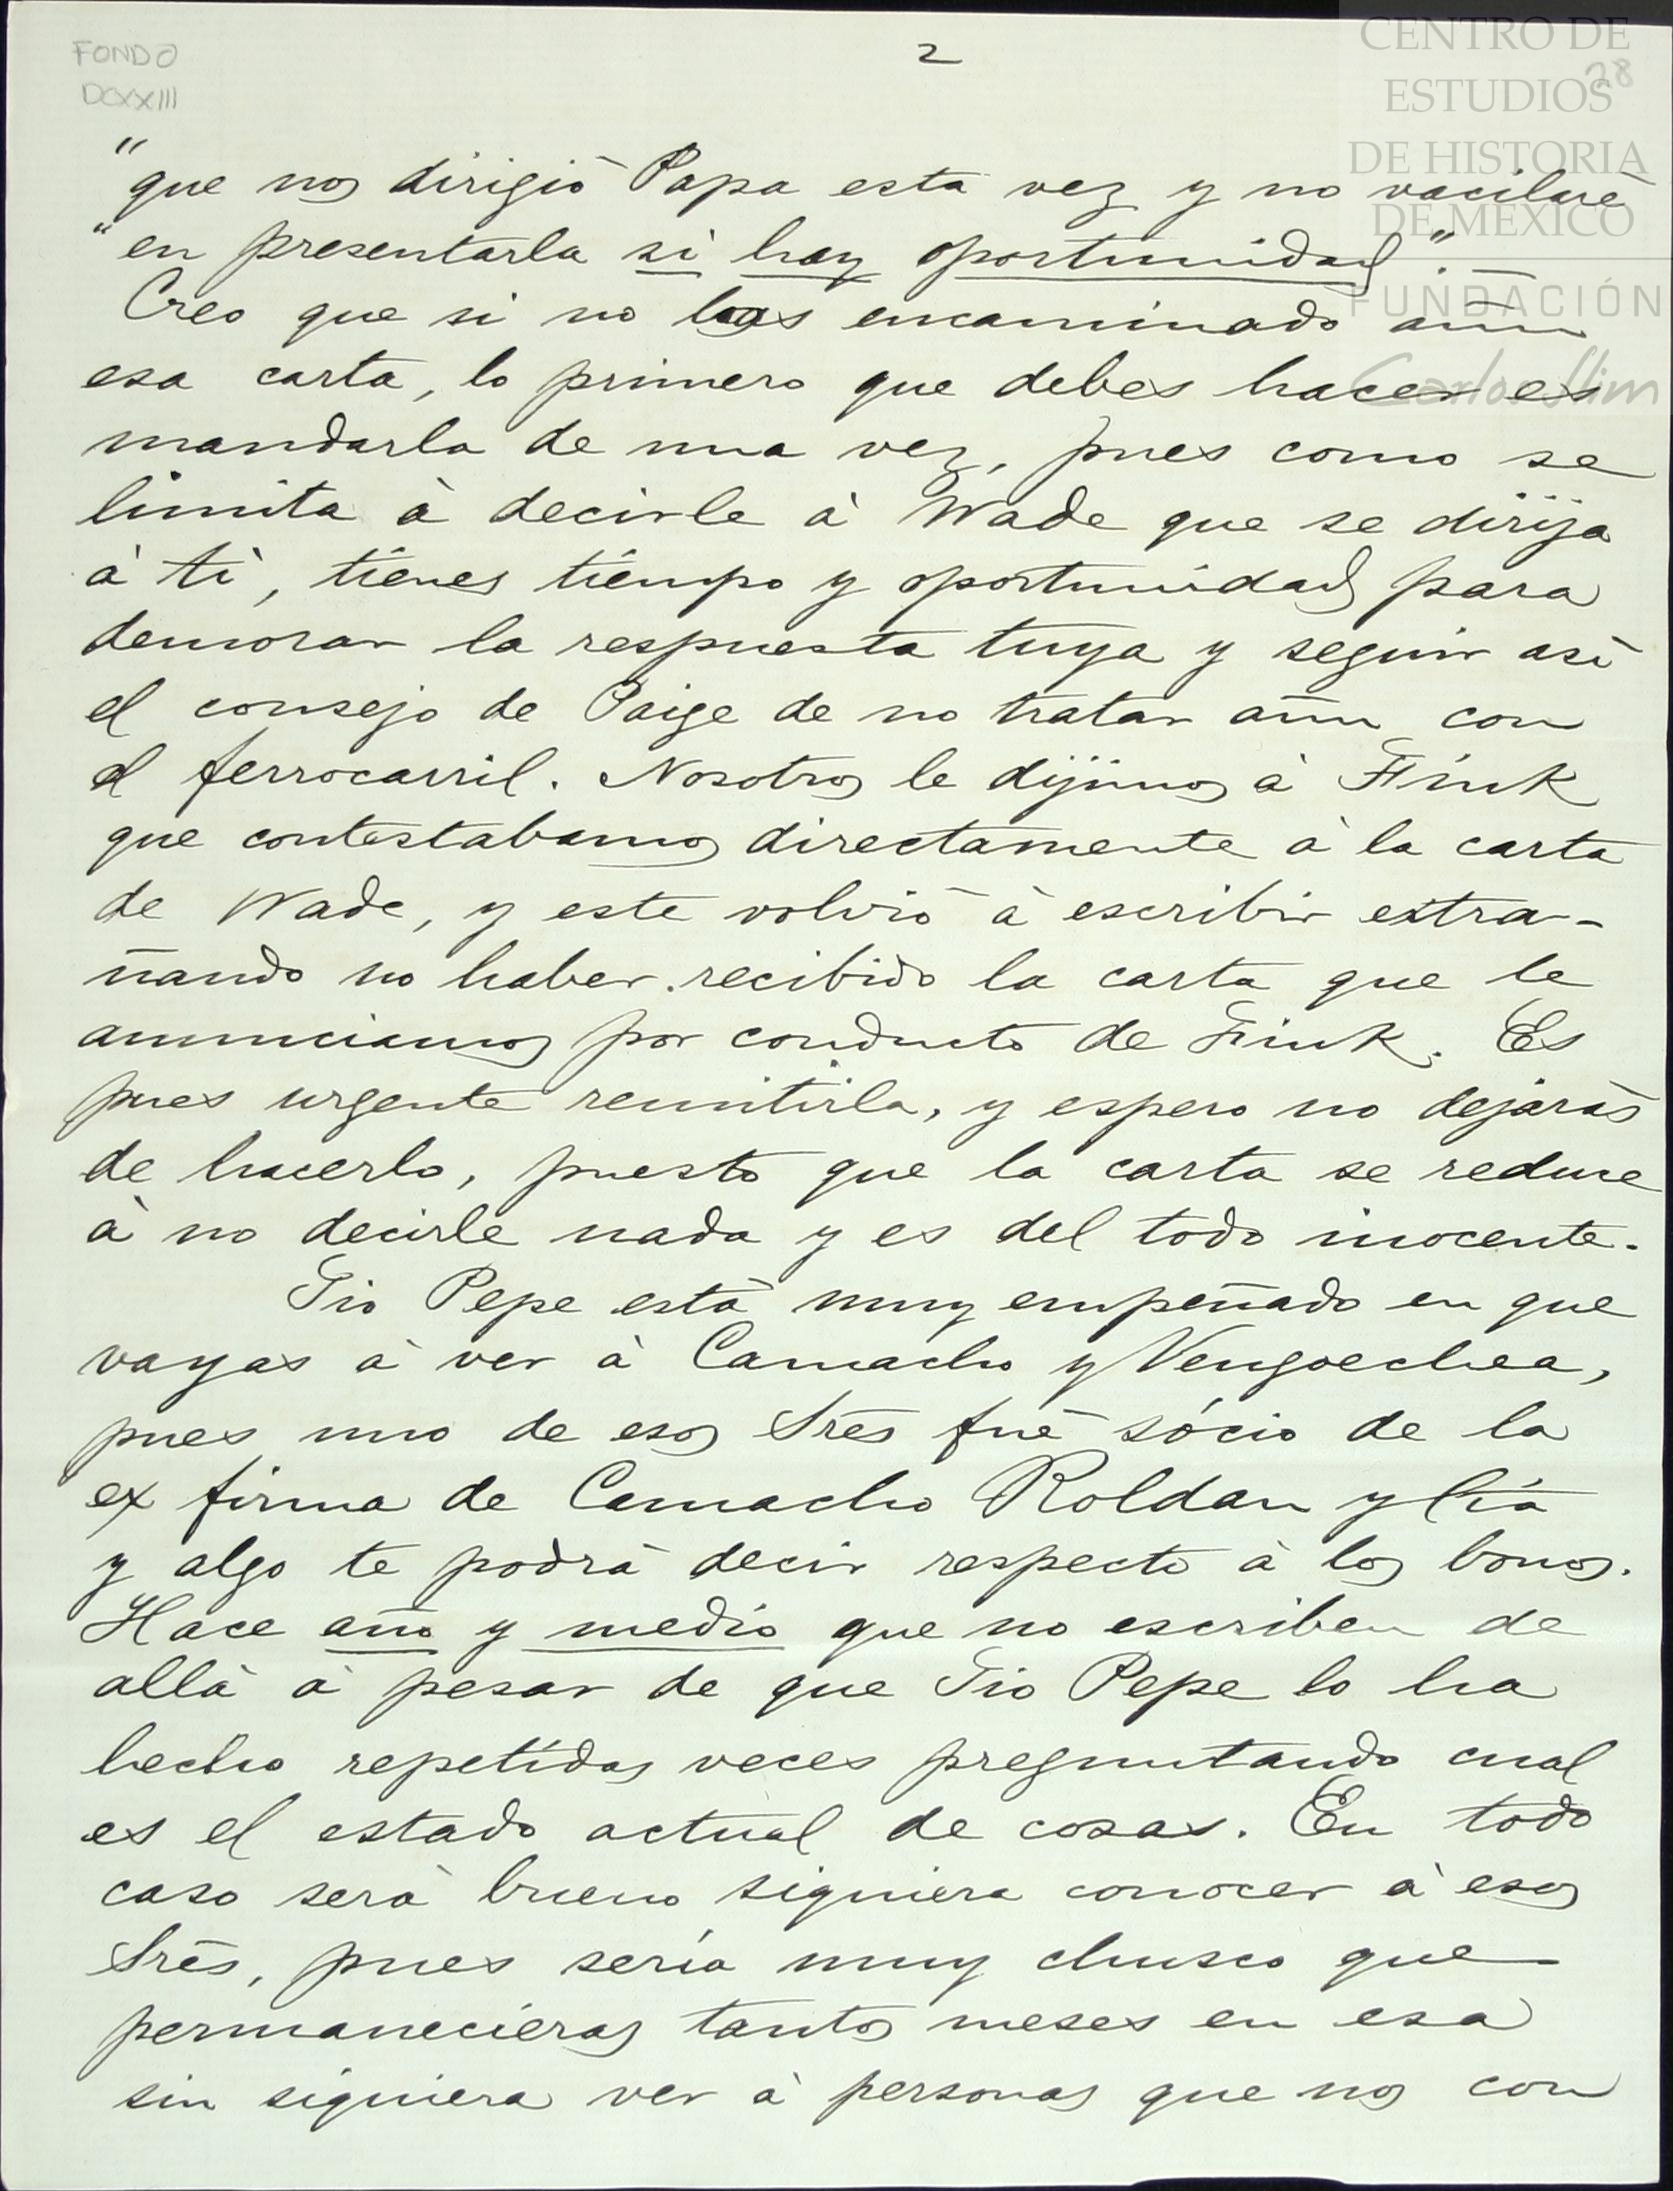 FONDO
DCXXIII
2
28
CENTRO DE
ESTUDIOS
DE HISTORIA
DE MEXICO
FUNDACIÓN
Carlos Slim
"que nos dirigió Papa esta vez y no vacilaré
"en presentarla si hay oportunidad".—
Creo que si no has encaminado aún
esa carta, lo primero que debes hacer es
mandarla de una vez, pues como se
limita à decirle à Wade que se dirija
à tì, tienes tiempo y oportunidad para
demorar la respuesta tuya y seguir asì
el consejo de Paige de no tratar aún con
el ferrocarril. Nosotros le dijimos à Fink
que contestabamos directamente à la carta
de Wade, y este volvió à escribir extra-
ñando no haber recibido la carta que le
anunciamos por conducto de Fink. Es
pues urgente remitirla, y espero no dejaràs
de hacerlo, puesto que la carta se reduce
à no decirle nada y es del todo inocente.
Tio Pepe està muy empeñado en que
vayas à ver à Camacho y Vengoechea,
pues uno de esos Sres fué sócio de la
ex firma de Camacho Roldan y Cía
y algo te podrà decir respecto à los bonos.
Hace año y medio que no escriben de
allà à pesar de que Tio Pepe lo ha
hecho repetidas veces preguntando cual
es el estado actual de cosas. En todo
caso serà bueno siquiera conocer à esos
Sres, pues sería muy chusco que
permanecieras tantos meses en esa
sin siquiera ver à personas que nos con